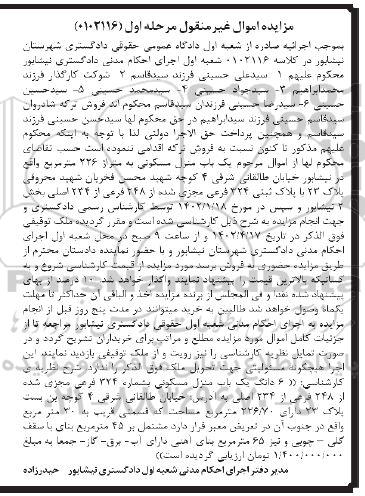 مزایده اموال غیرمنقول مرحله اول (۰۱۰۳۱۱۶)
بموجب اجرائیه صادره از شعبه اول دادگاه عمومی حقوقی دادگستری شهرستان
نیشابور در کلاسه ۰۱۰۳۱۱۶ شعبه اول اجرای احکام مدنی دادگستری نیشابور
محکوم علیهم ۱- سیدعلی حسینی فرزند سیدقاسم ۲- شوکت کارگذار فرزند
محمدابراهیم ۳- سیدجواد حسینی ۴- سیدمحمد حسینی ۵- سیدحسین
حسینی ۶- سیدرضا حسینی فرزندان سیدقاسم محکوم اند فروش ترکه شادروان
سیدقاسم حسینی فرزند سیدابراهیم در حق محکوم لها سیدحسن حسینی فرزند
سیدقاسم و همچنین پرداخت حق الاجرا دولتی لذا با توجه به اینکه محکوم
علیهم مذکور تا کنون نسبت به فروش ترکه اقدامی ننموده است حسب تقاضای
محکوم لها از اموال مرحوم یک باب منزل مسکونی به متراژ ۲۲۶ مترمربع واقع
در نیشابور خیابان طالقانی شرقی ۴ کوچه شهید محسن فخریان شهید محروقی
پلاک ۲۳ با پلاک ثبتی ۳۲۴ فرعی مجزی شده از ۲۴۸ فرعی از ۲۳۴ اصلی بخش
۲ نیشابور و سپس در مورخ ۱۴۰۲/۱/۱۸ توسط کارشناس رسمی دادگستری و
جهت انجام مزایده به شرح ذیل کارشناسی شده است و مقرر گردیده ملک توقیفی
فوق الذکر در تاریخ ۱۴۰۲/۴/۱۷ و از ساعت ۹ صبح در محل شعبه اول اجرای
احکام مدنی دادگستری شهرستان نیشابور و با حضور نماینده دادستان محترم از
طریق مزایده حضوری به فروش برسد مورد مزایده از قیمت کارشناسی شروع و به
کسانیکه بالاترین قیمت را پیشنهاد نمایند واگذار خواهد شد. ۱۰ درصد از بهای
پیشنهاد شده نقدا و فی المجلس از برنده مزایده اخذ و الباقی آن حداکثر تا مهلت
یکماه وصول خواهد شد طالبین به خرید میتوانند در مدت پنج روز قبل از انجام
مزایده به اجرای احکام مدنی شعبه اول حقوقی دادگستری نیشابور مراجعه تا از
جزئیات کامل اموال مورد مزایده مطلع و مراتب برای خریداران تشریح گردد و در
صورت تمایل نظریه کارشناسی را نیز رویت و از ملک توقیفی بازدید نمایند. این
اجرا هیچگونه مسئولیتی جهت تحویل ملک فوق الذکر را ندارد شرح نظریه ی
کارشناسی: (( ۶ دانگ یک باب منزل مسکونی بشماره ۳۲۴ فرعی مجزی شده
از ۲۴۸ فرعی از ۲۳۴ اصلی به آدرس خیابان طالقانی شرقی ۴ کوچه بن بست
پلاک ۲۳ دارای ۲۲۶/۷۰ مترمربع مساحت که قسمتی قریب به ۳۰ متر مربع
واقع در جنوب آن در تعریض معبر قرار دارد مشتمل بر ۴۵ مترمربع بنای با سقف
گلی – چوبی و نیز ۶۵ مترمربع بنای آهنی دارای آب- برق- گاز- جمعا به مبلغ
۱/۴۰۰/۰۰۰/۰۰۰ تومان ارزیابی گردیده است))
مدیر دفتر اجرای احکام مدنی شعبه اول دادگستری نیشابور حیدرزاده